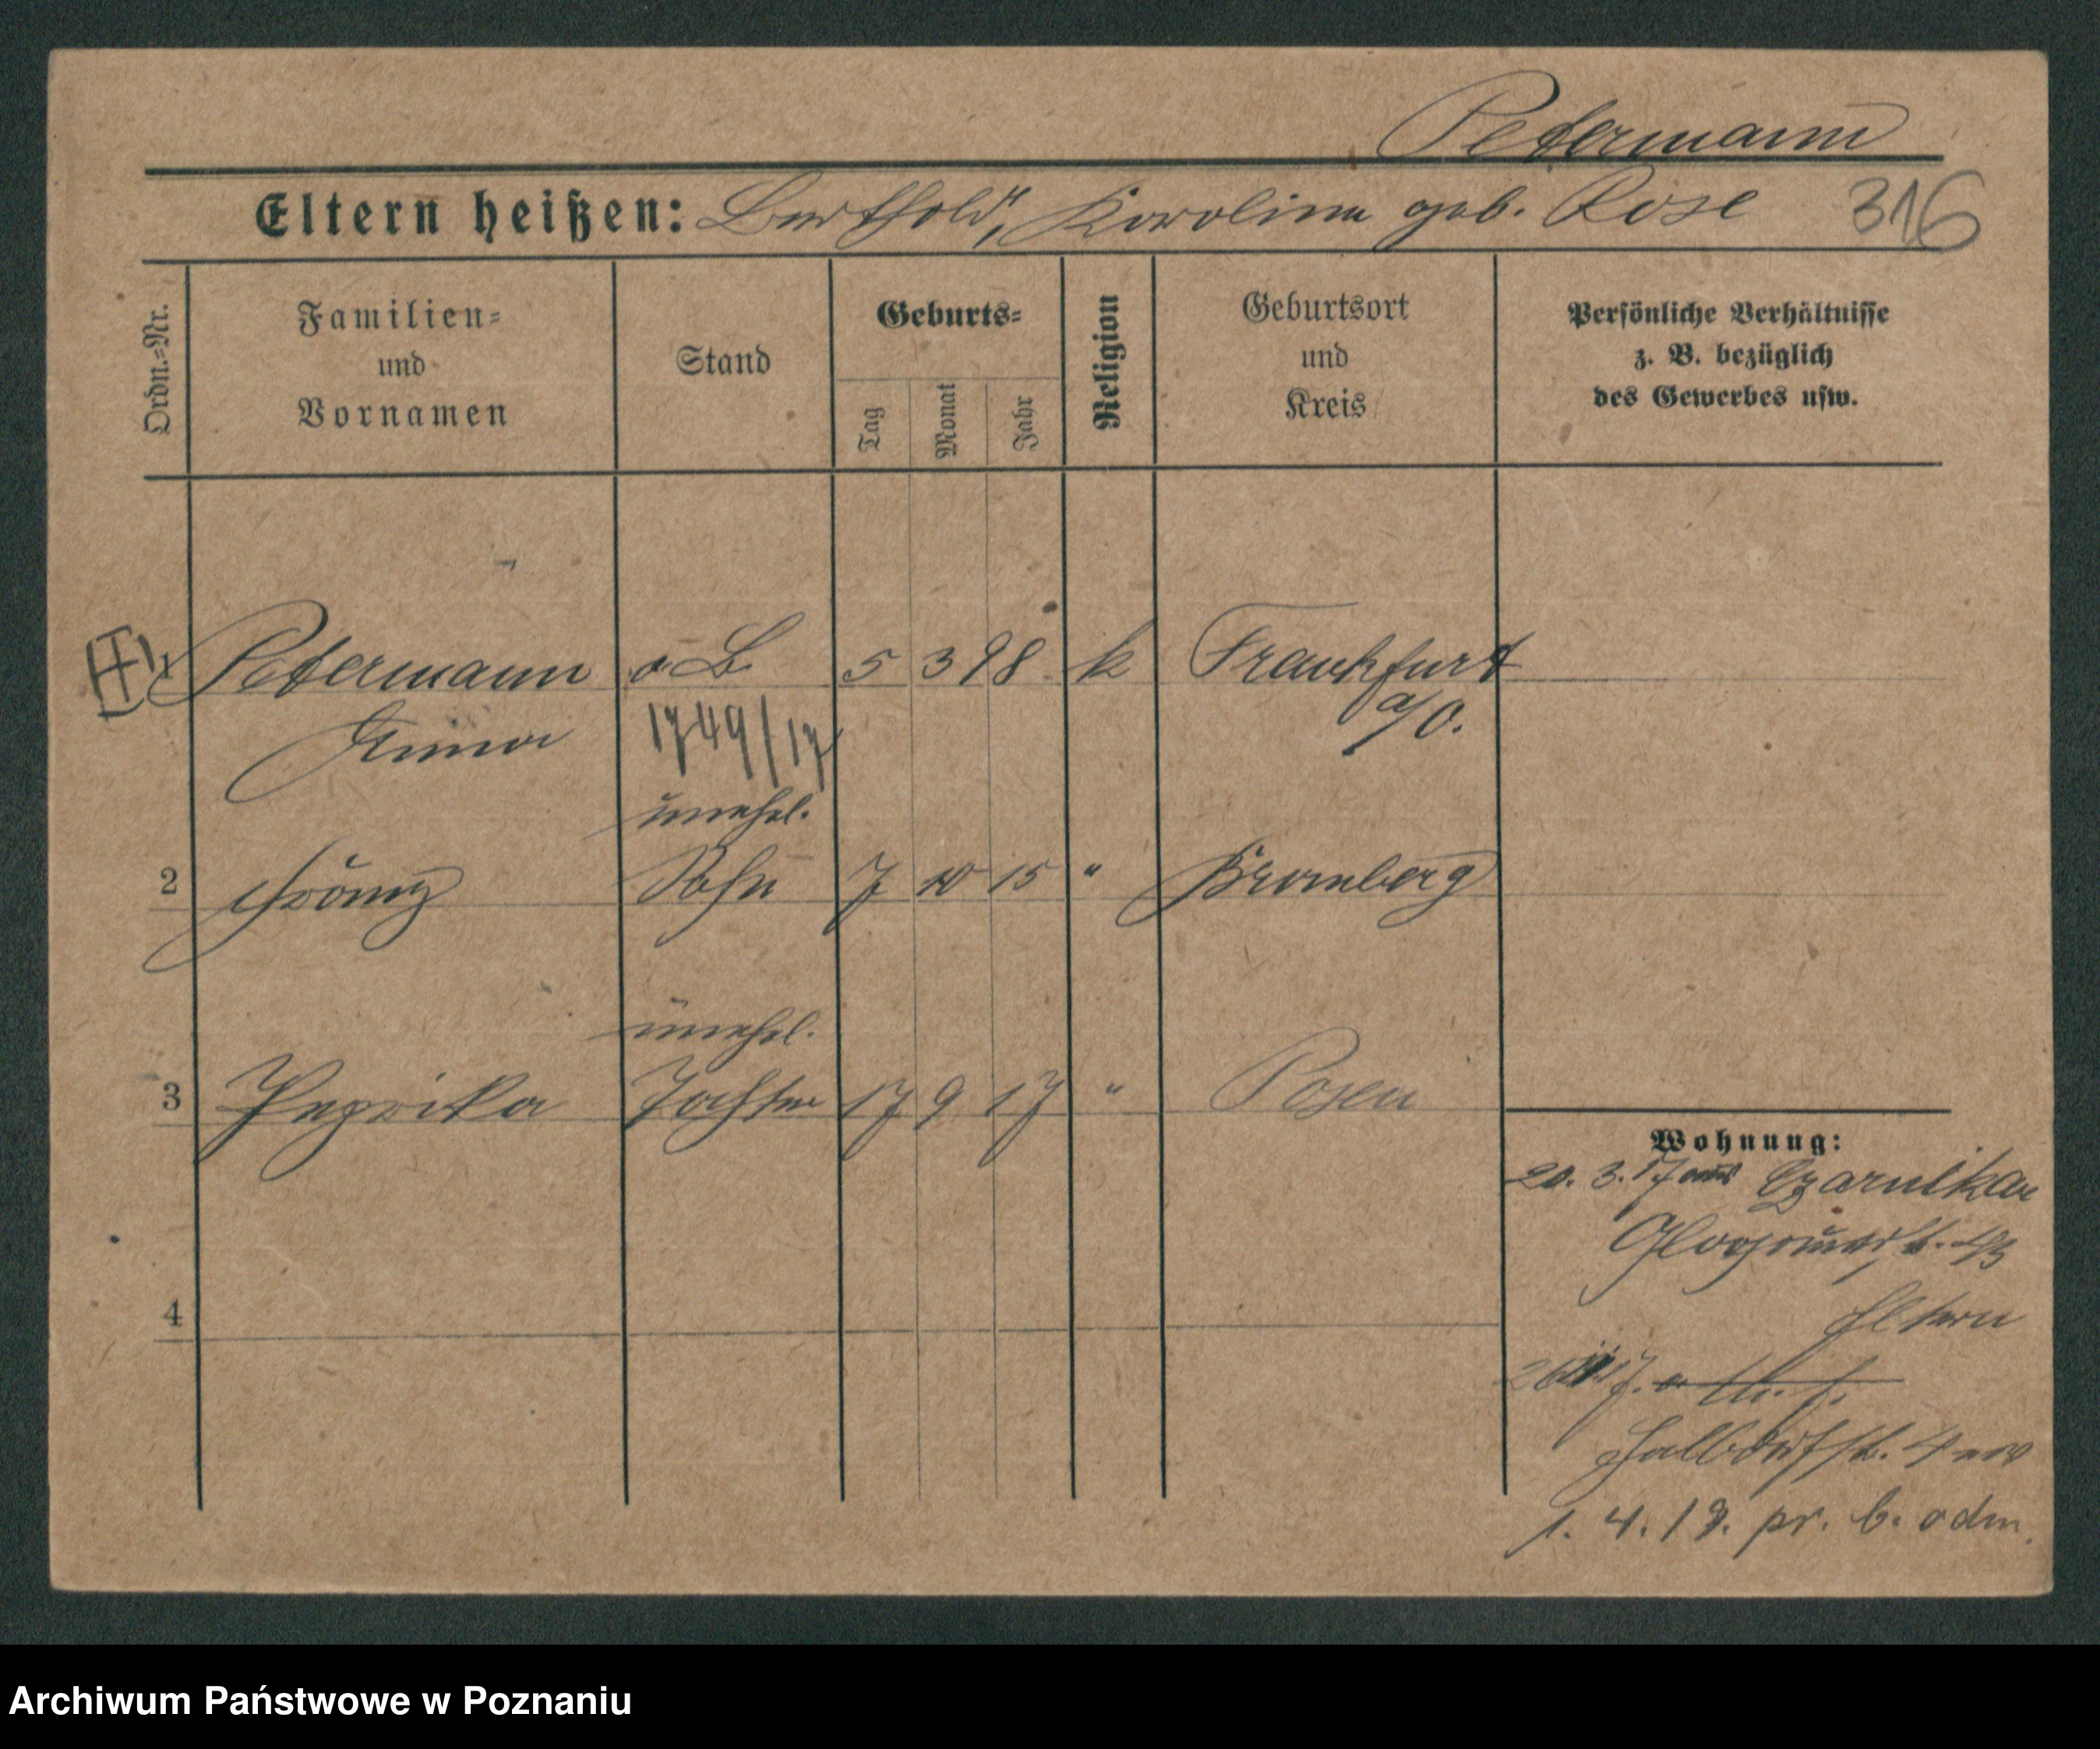 Petermann
Eltern heißen: Berthold, Karolina geb. Rose 316
Ordn.-Nr. Familien- und Vornamen Stand Geburts- Tag Monat Jahr Religion Geburtsort und Kreis Persönliche Verhältnisse z. B. bezüglich des Gewerbes usw.
1 Petermann o B 5 3 98 k Frankfurt
Anna 1749/17 a/O.
unehel.
2 Franz Sohn 7 10 15 " Bromberg
unehel.
3 Tochter 17 9 17 " Posen
Wohnung:
20. 3. 17 aus Czarnikau
Glogauerst.
Eltern
4
Halbdorfst. 4
1. 4. 19. pr. b. odm.
Archiwum Państwowe w Poznaniu